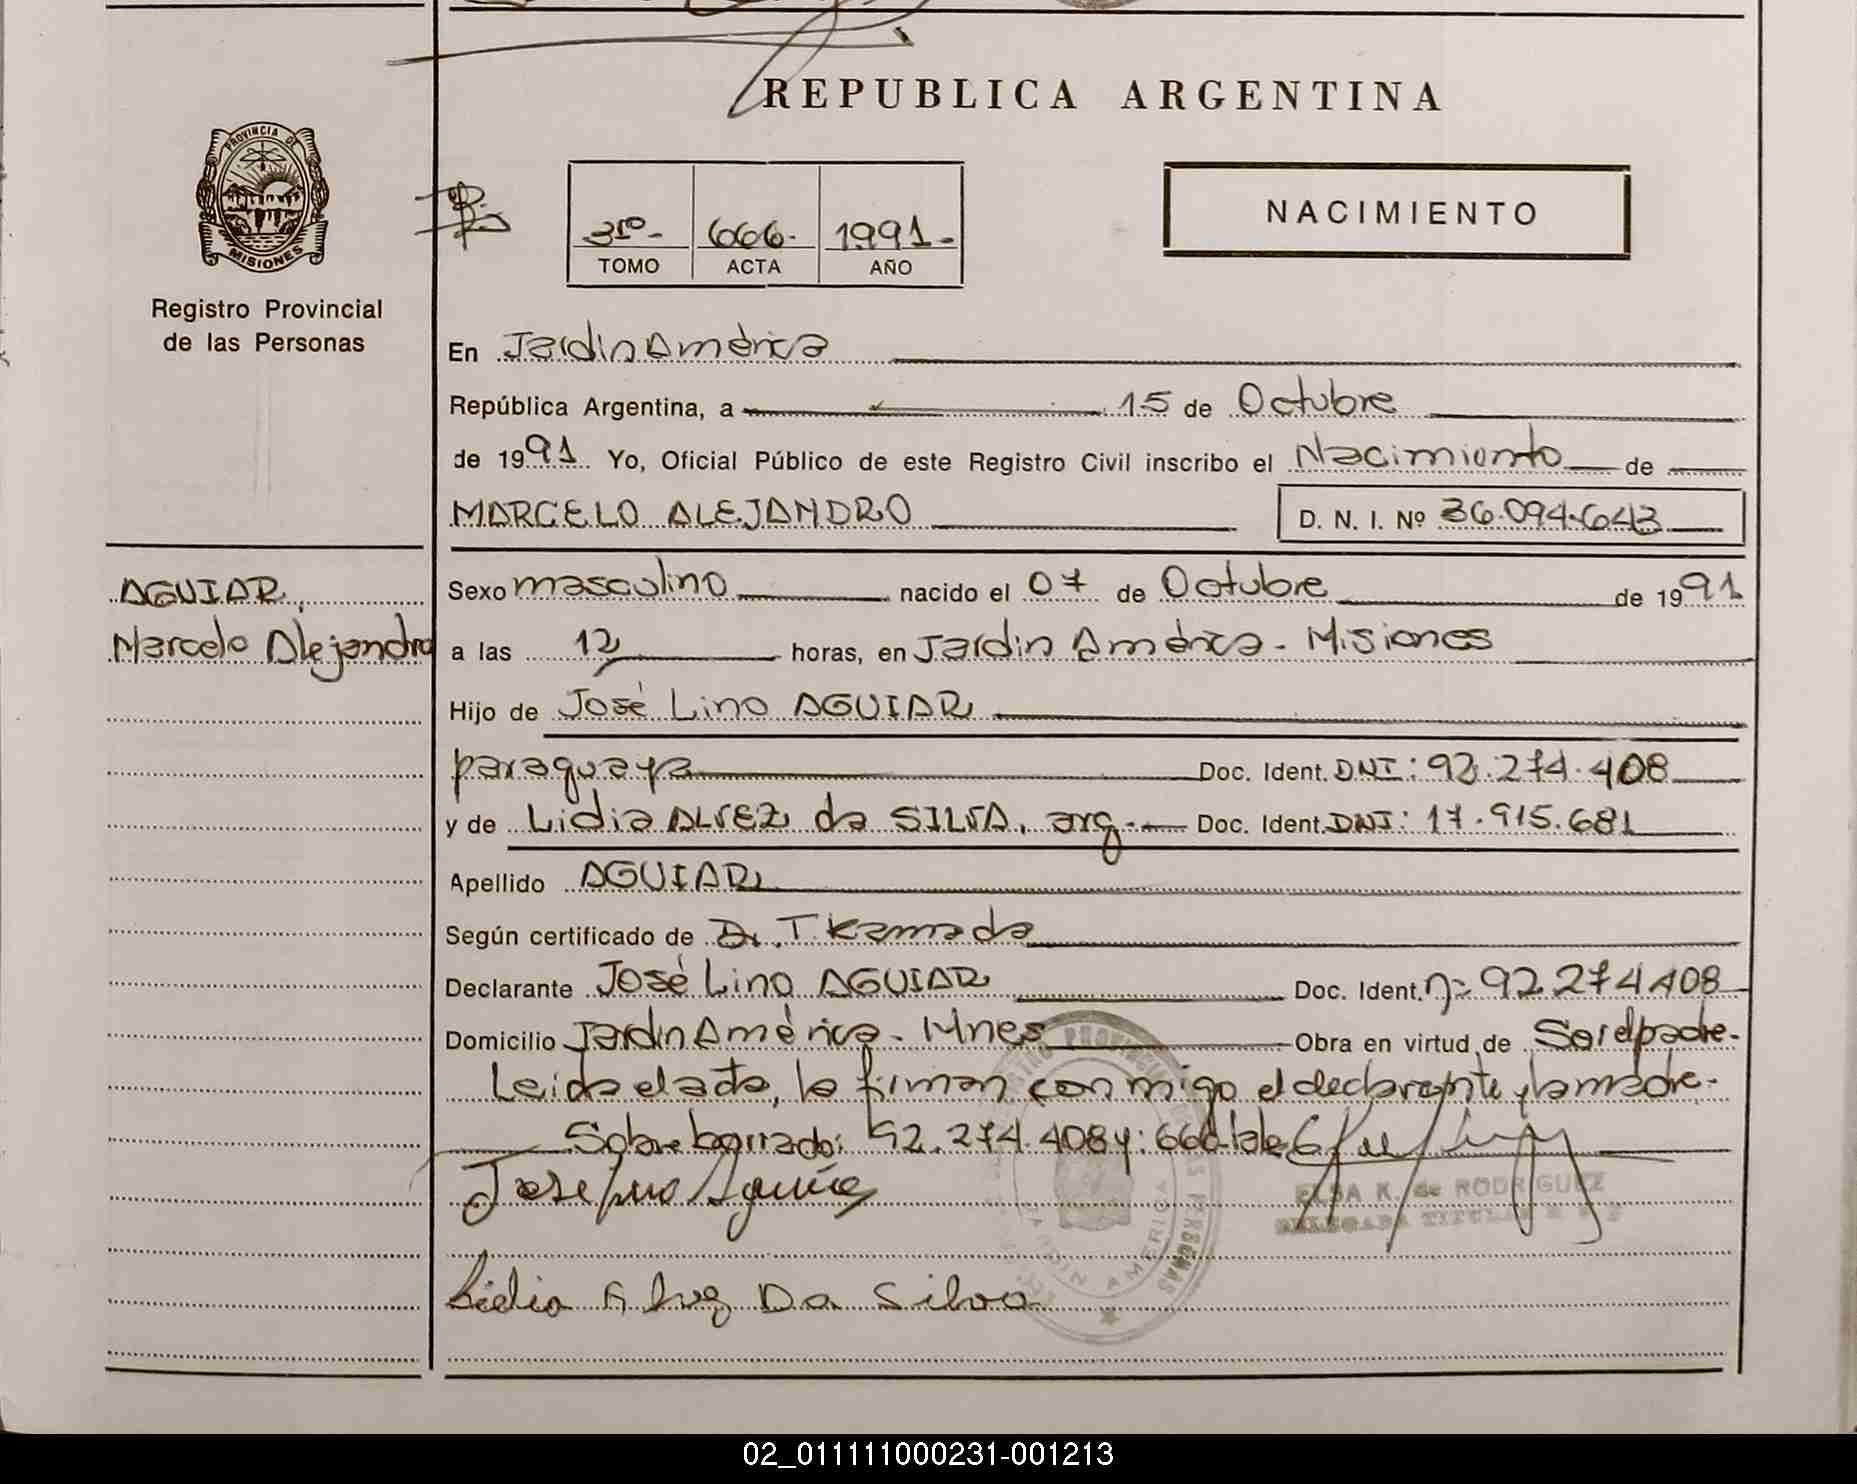 REPUBLICA ARGENTINA
PROVINCIA DE MISIONES
Registro Provincial
de las Personas
3ro- 666- 1991-
TOMO ACTA AÑO
NACIMIENTO
En Jardín América
República Argentina, a 15 de Octubre
de 1991 Yo, Oficial Público de este Registro Civil inscribo el Nacimiento de
MARCELO ALEJANDRO D. N. I. Nº 36.094.643
AGUIAR,
Marcelo Alejandro
Sexo masculino nacido el 07 de Octubre de 1991
a las 12 horas, en Jardín América - Misiones
Hijo de José Lino AGUIAR
paraguaya Doc. Ident. DNI: 92.274.408
y de Lidia ALVEZ da SILVA, arg.- Doc. Ident. DNI: 17.915.681
Apellido AGUIAR
Según certificado de Dr. T. Kamada
Declarante José Lino AGUIAR Doc. Ident. nº 92 274 408
Domicilio Jardín América - Mnes Obra en virtud de Ser el padre.
Leida el acta, la firman conmigo el declarante y la madre.
Sobre borrado: 92.274.408 y: 666-Vale
Jose Lino Aguiar
ELSA K. de RODRIGUEZ
DELEGADA TITULAR
REGISTRO PROVINCIAL DE LAS PERSONAS
JARDIN AMERICA
Lidia Alvez Da Silva
02_011111000231-001213